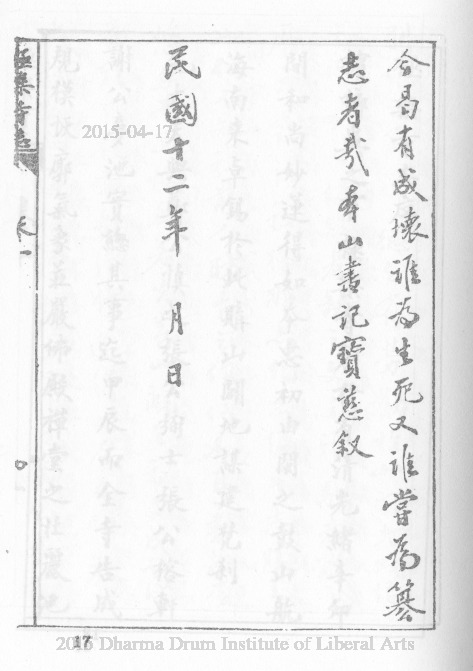 今曷有成壞誰為生死又誰當為纂
志者哉本山書記寶慈叙
民國十二年　月　日
極樂寺志
卷一
17
2015-04-17
2015 Dharma Drum Institute of Liberal Arts